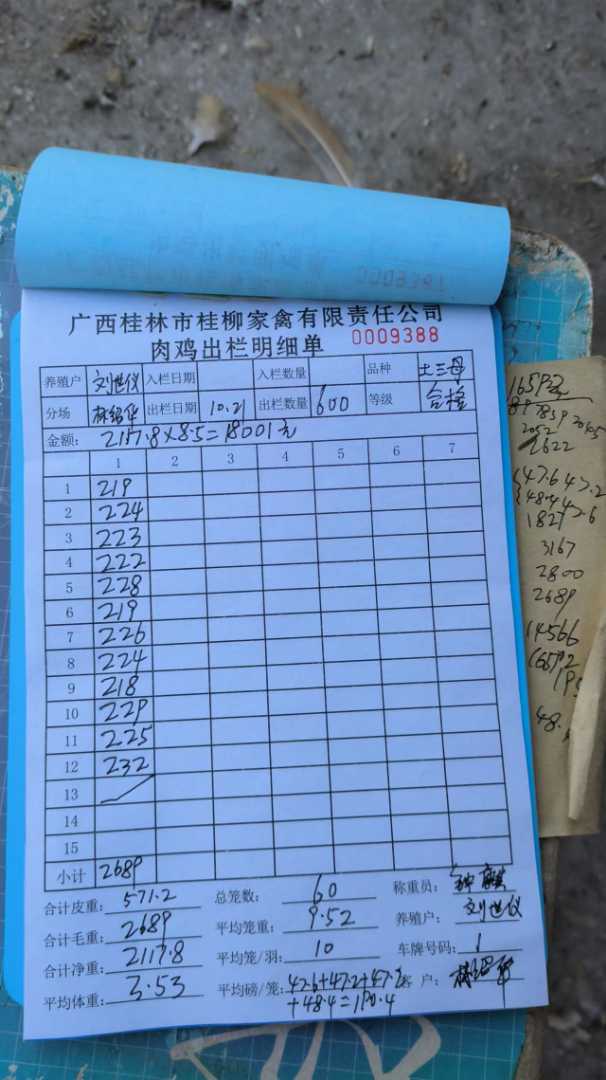 广西桂林市桂柳家禽有限责任公司
肉鸡出栏明细单 0009388
养殖户 刘世仪 入栏日期 入栏数量 品种 土三母
分场 林绍华 出栏日期 10.21 出栏数量 600 等级 合格
金额: 2117.8×8.5=18001元
1 2 3 4 5 6 7
1 219
2 224
3 223
4 222
5 228
6 219
7 226
8 224
9 218
10 229
11 225
12 232
13
14
15
小计 2689
合计皮重: 571.2 总笼数: 60 称重员: 钟
合计毛重: 2689 平均笼重: 9.52 养殖户: 刘世仪
合计净重: 2117.8 平均笼/羽: 10 车牌号码: 1
平均体重: 3.53 平均磅/笼: 47.6+47.2+47.2 客户: 林绍华
+48.4=190.4
2622
1827
3167
2800
2689
14566